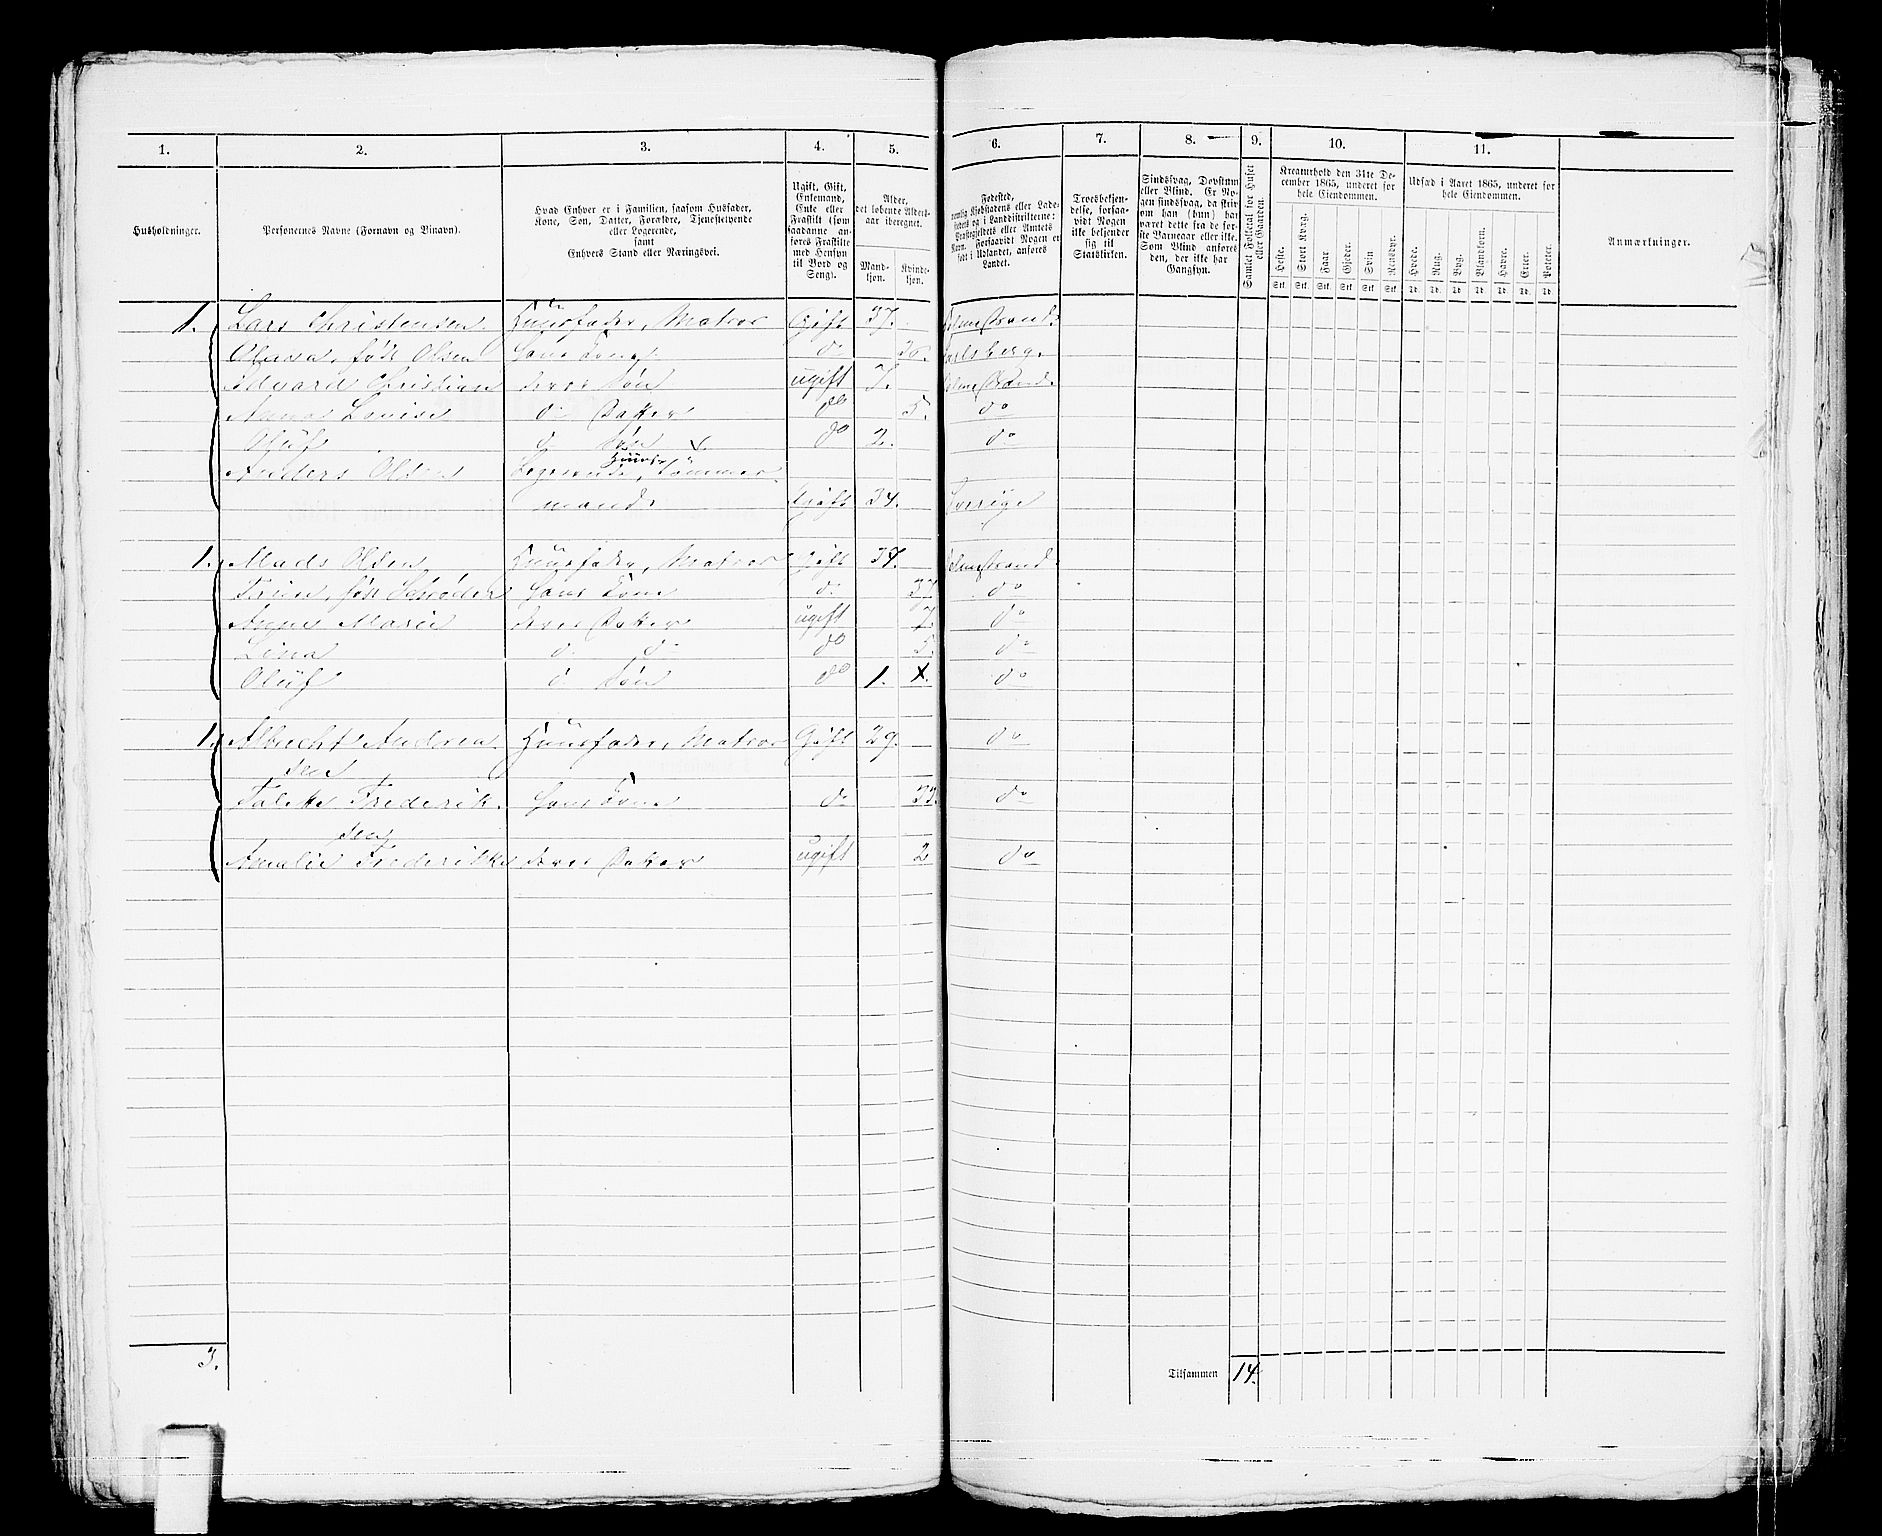 1. 2. 3. 4. 5. 6. 7. 8. 9. 10. 11.
Husholdninger.
Personernes Navne (Fornavn og Binavn).
Hvad Enhver er i Familien, saasom Husfader,
Kone, Søn, Datter, Forældre, Tjenestetyende
eller Logerende,
samt
Enhvers Stand eller Næringsvei.
Ugift, Gift,
Enkemand,
Enke eller
Fraskilt (som
saadanne an-
føres Fraskilte
med Hensyn
til Bord og
Seng).
Alder,
det løbende Alders-
aar iberegnet.
Mand-
kjøn.
Kvinde-
kjøn.
Fødested,
nemlig Kjøbstadens eller Lade-
stedets og i Landdistrikterne:
Præstegjeldets eller Amtets
Navn. Forsaavidt Nogen er
født i Udlandet, anføres
Landet.
Troesbekjen-
delse, forsaa-
vidt Nogen
ikke bekjender
sig til
Statskirken.
Sindssvag, Døvstum
eller Blind. Er No-
gen sindssvag, da skriv
om han (hun) har
været dette fra de før-
ste Barneaar eller ikke.
Som Blind anføres
den, der ikke har
Gangsyn.
Samlet Folketal for Huset
eller Gaarden.
Kreaturhold den 31te De-
cember 1865, underet for
hele Eiendommen.
Heste. Stort Kvæg. Faar Gjeder. Svin Rensdyr.
Stk. Stk. Stk. Stk. Stk. Stk.
Udsæd i Aaret 1865, underet for
hele Eiendommen.
Hvede. Rug. Byg. Blandkorn. Havre. Erter. Poteter.
Td. Td. Td. Td. Td. Td. Td.
Anmærkninger.
1. Lars Christensen Huusfader, Matros Gift 37.
født Olsen Hans Kone do
Edvard Christian deres Søn ugift 7.
Anna Louise do Datter do 5. do
Oluf do Søn do 2. do
Anders Olsen Logerende, Huus- Tømmer-
mand Gift 34. Sverige
1. Mads Olsen Huusfader, Matros Gift 37.
født Schrøder Hans Kone do 37 do
Marie deres Datter ugift 7. do
Lina do do do 5. do
Oluf do Søn do 1. do
1. Albrecht Andrea- Huusfader, Matros Gift 29. do
sen
Frederik- Hans Kone do 33. do
sen
Amalie Frederikke deres Datter ugift 2 do
3.
Tilsammen 14.